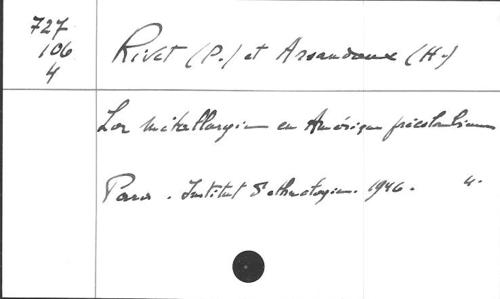 727
106
4
Rivet (P.) et Arsandaux (H.)
La métallurgie en Amérique précolombienne
Paris. Institut d'ethnologie. 1946. 4.